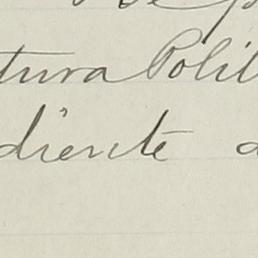 tura Polit
diente a